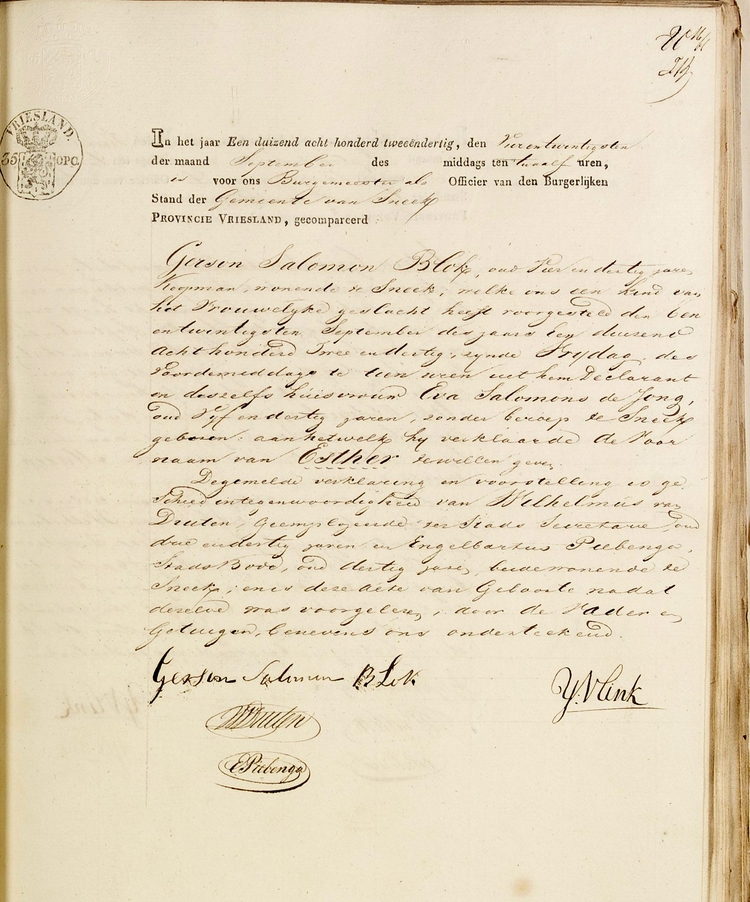 VRIESLAND.
35 OPC.
In het jaar Een duizend acht honderd tweeëndertig, den Vierentwintigsten
der maand September des middags ten twaalf uren,
is voor ons Burgemeester als Officier van den Burgerlijken
Stand der Gemeente van Sneek
PROVINCIE VRIESLAND, gecompareerd
Gerson Salomon Blok, oud Vier en dertig jaren
Koopman, wonende te Sneek; welke ons een kind van
het Vrouwelyke geslacht heeft voorgesteld den Een
entwintigsten September des jaars Een duizend
Acht honderd Twee en dertig, zynde Frydag, des
Voordemiddags te tien uren uit hem Declarant
en deszelfs huisvrouw Eva Salomons de Jong,
oud Vyf en dertig jaren, zonder beroep te Sneek
geboren: aan hetwelk hy verklaarde de Voor
naam van Esther te willen geven.
Degemelde verklaring en voorstelling is ge
schied in tegenwoordigheid van Wilhelmus van
Druten, geemployeerde ter Stads Secretarie, oud
drie en dertig jaren en Engelbartus Piebenga,
Stads Bode, oud dertig jaren, beide wonende te
Sneek; en is deze acte van Geboorte nadat
dezelve was voorgelezen, door de Vader en
Getuigen, benevens ons onderteekend.
Gerson Salomon Blok
Y. Vlink
E Piebenga